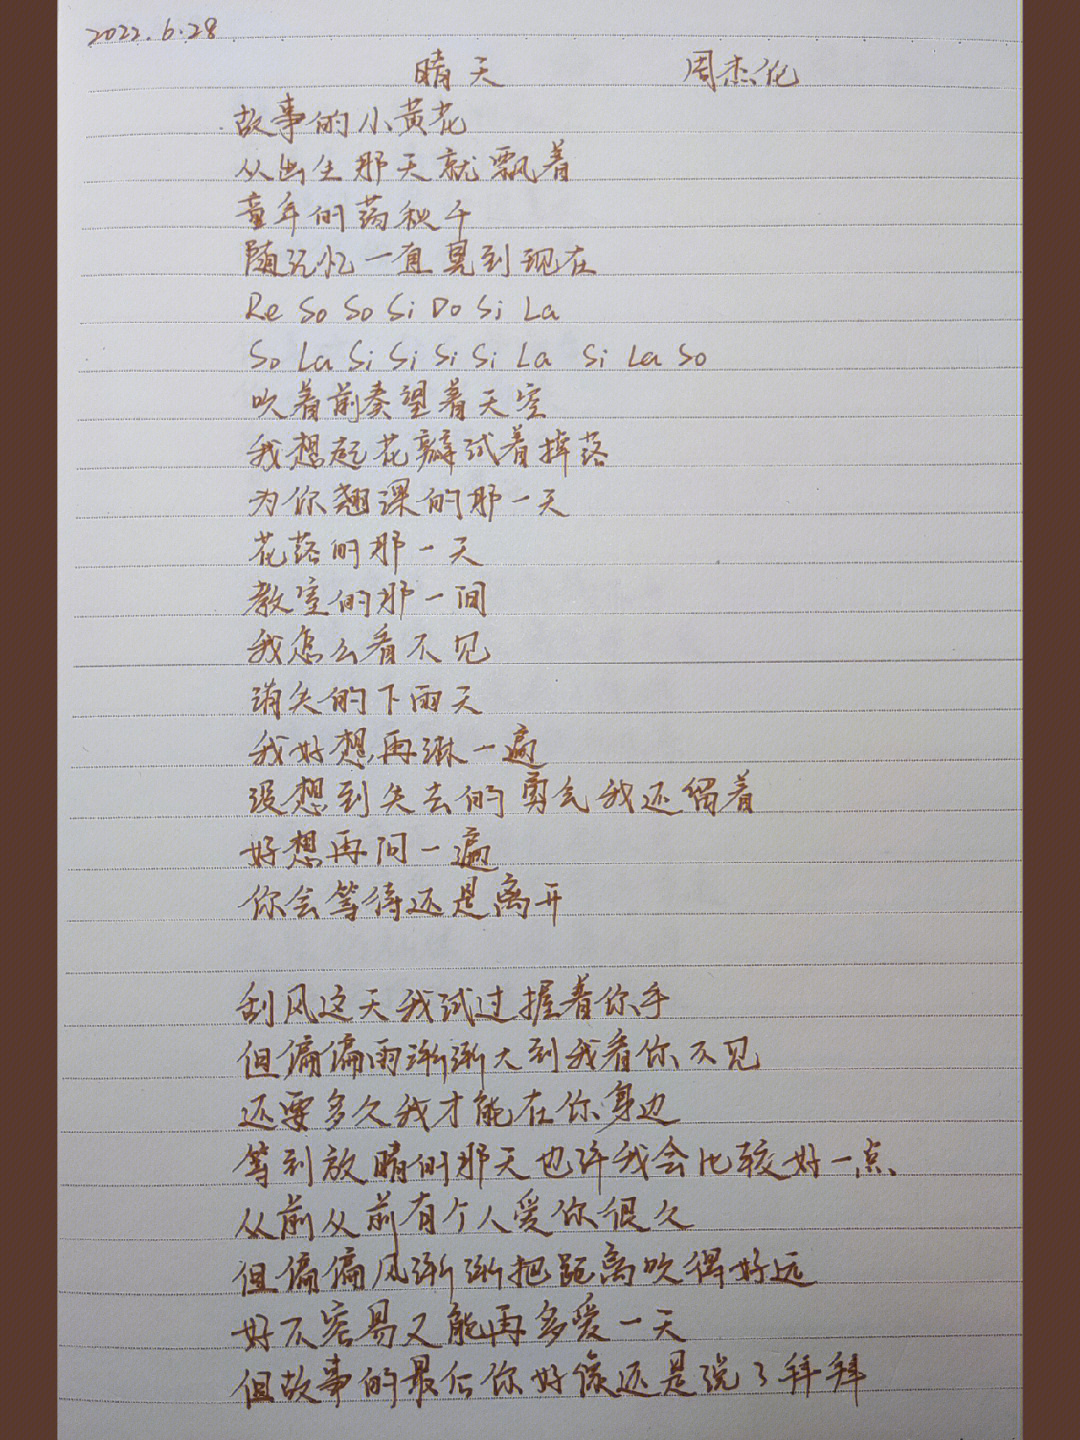 2022.6.28
晴天 周杰伦
故事的小黄花
从出生那天就飘着
童年的荡秋千
随记忆一直晃到现在
Re So So Si Do Si La
So La Si Si Si Si La Si La So
吹着前奏望着天空
我想起花瓣试着掉落
为你翘课的那一天
花落的那一天
教室的那一间
我怎么看不见
消失的下雨天
我好想再淋一遍
没想到失去的勇气我还留着
好想再问一遍
你会等待还是离开
刮风这天我试过握着你手
但偏偏雨渐渐大到我看你不见
还要多久我才能在你身边
等到放晴的那天也许我会比较好一点
从前从前有个人爱你很久
但偏偏风渐渐把距离吹得好远
好不容易又能再多爱一天
但故事的最后你好像还是说了拜拜